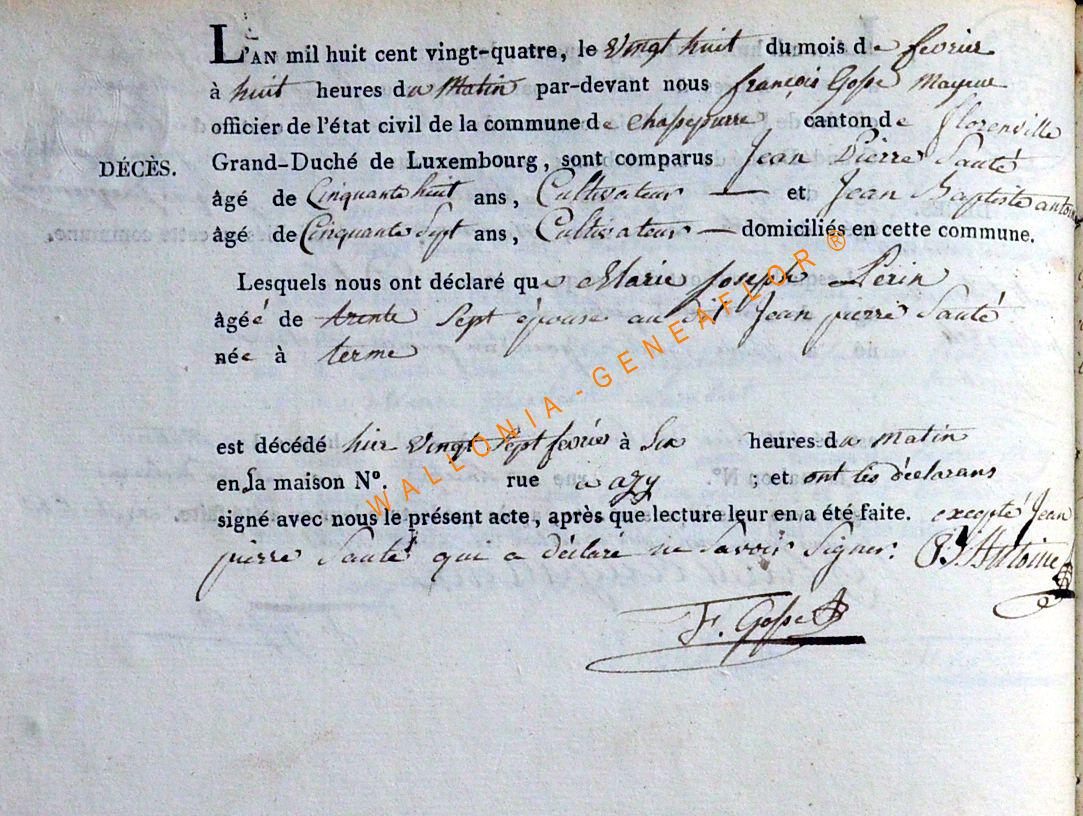 L'AN mil huit cent vingt-quatre, le vingt huit du mois de fevrier
à huit heures du Matin par-devant nous françois Gosse Mayeur
officier de l'état civil de la commune de chassepierre canton de florenville
DÉCÈS.
Grand-Duché de Luxembourg, sont comparus Jean Pierre Sauté
âgé de Cinquante huit ans, Cultivateur — et Jean Baptiste antoine
âgé de Cinquante Sept ans, Cultivateur — domiciliés en cette commune.
Lesquels nous ont déclaré que Marie Joseph Perin
âgéé de trente Sept épouse au dit Jean pierre Sauté
née à terme
est décédé hier vingt sept fevrier à Six heures du matin
en la maison N°. rue a azy ; et ont les déclarans
signé avec nous le présent acte, après que lecture leur en a été faite. excepté Jean
pierre Sauté que a déclaré ne Savoir Signer. JB Antoine
F. Gosse
WALLONIA - GENEAFLOR ®